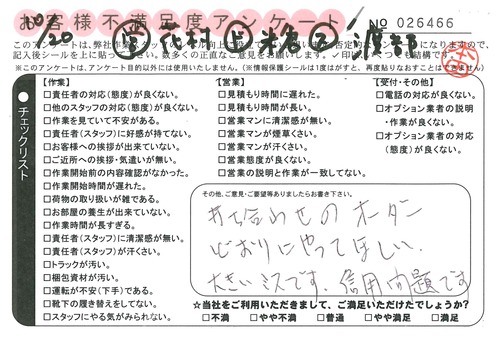 お客様不満足度アンケート
№ 026466
10/20
花村
渡部
このアンケートは、弊社作業スタッフの
記入後シールを上に貼って
※このアンケートは、アンケート目的以外には使用いたしません。(※情報保護シールは1度はがすと、再度貼りなおすことは
チェックリスト
【作業】
□責任者の対応(態度)が良くない。
□他のスタッフの対応(態度)が良くない。
□作業を見ていて不安がある。
□責任者(スタッフ)に好感が持てない。
□お客様への挨拶が出来ていない。
□ご近所への挨拶・気遣いが無い。
□作業開始前の内容確認がなかった。
□作業開始時間が遅れた。
□荷物の取り扱いが雑である。
□お部屋の養生が出来ていない。
□作業時間が長すぎる。
□責任者(スタッフ)に清潔感が無い。
□責任者(スタッフ)が汗くさい。
□トラックが汚い。
□梱包資材が汚い。
□運転が不安(下手)である。
□靴下の履き替えをしてない。
□スタッフにやる気がみられない。
【営業】
□見積もり時間に遅れた。
□見積もり時間が長い。
□営業マンに清潔感が無い。
□営業マンが煙草くさい。
□営業マンが汗くさい。
□営業態度が良くない。
□営業の説明と作業が一致してない。
【受付・その他】
□電話の対応が良くない。
□オプション業者の説明
・作業が良くない。
□オプション業者の対応
(態度)が良くない。
その他、ご意見・ご要望等ありましたらお書き下さい。
打ち合わせのオーダー
どおりにやってほしい。
大きいミスです。信用問題です
☆当社をご利用いただきまして、ご満足いただけたでしょうか?
□不満 □やや不満 □普通 □やや満足 □満足